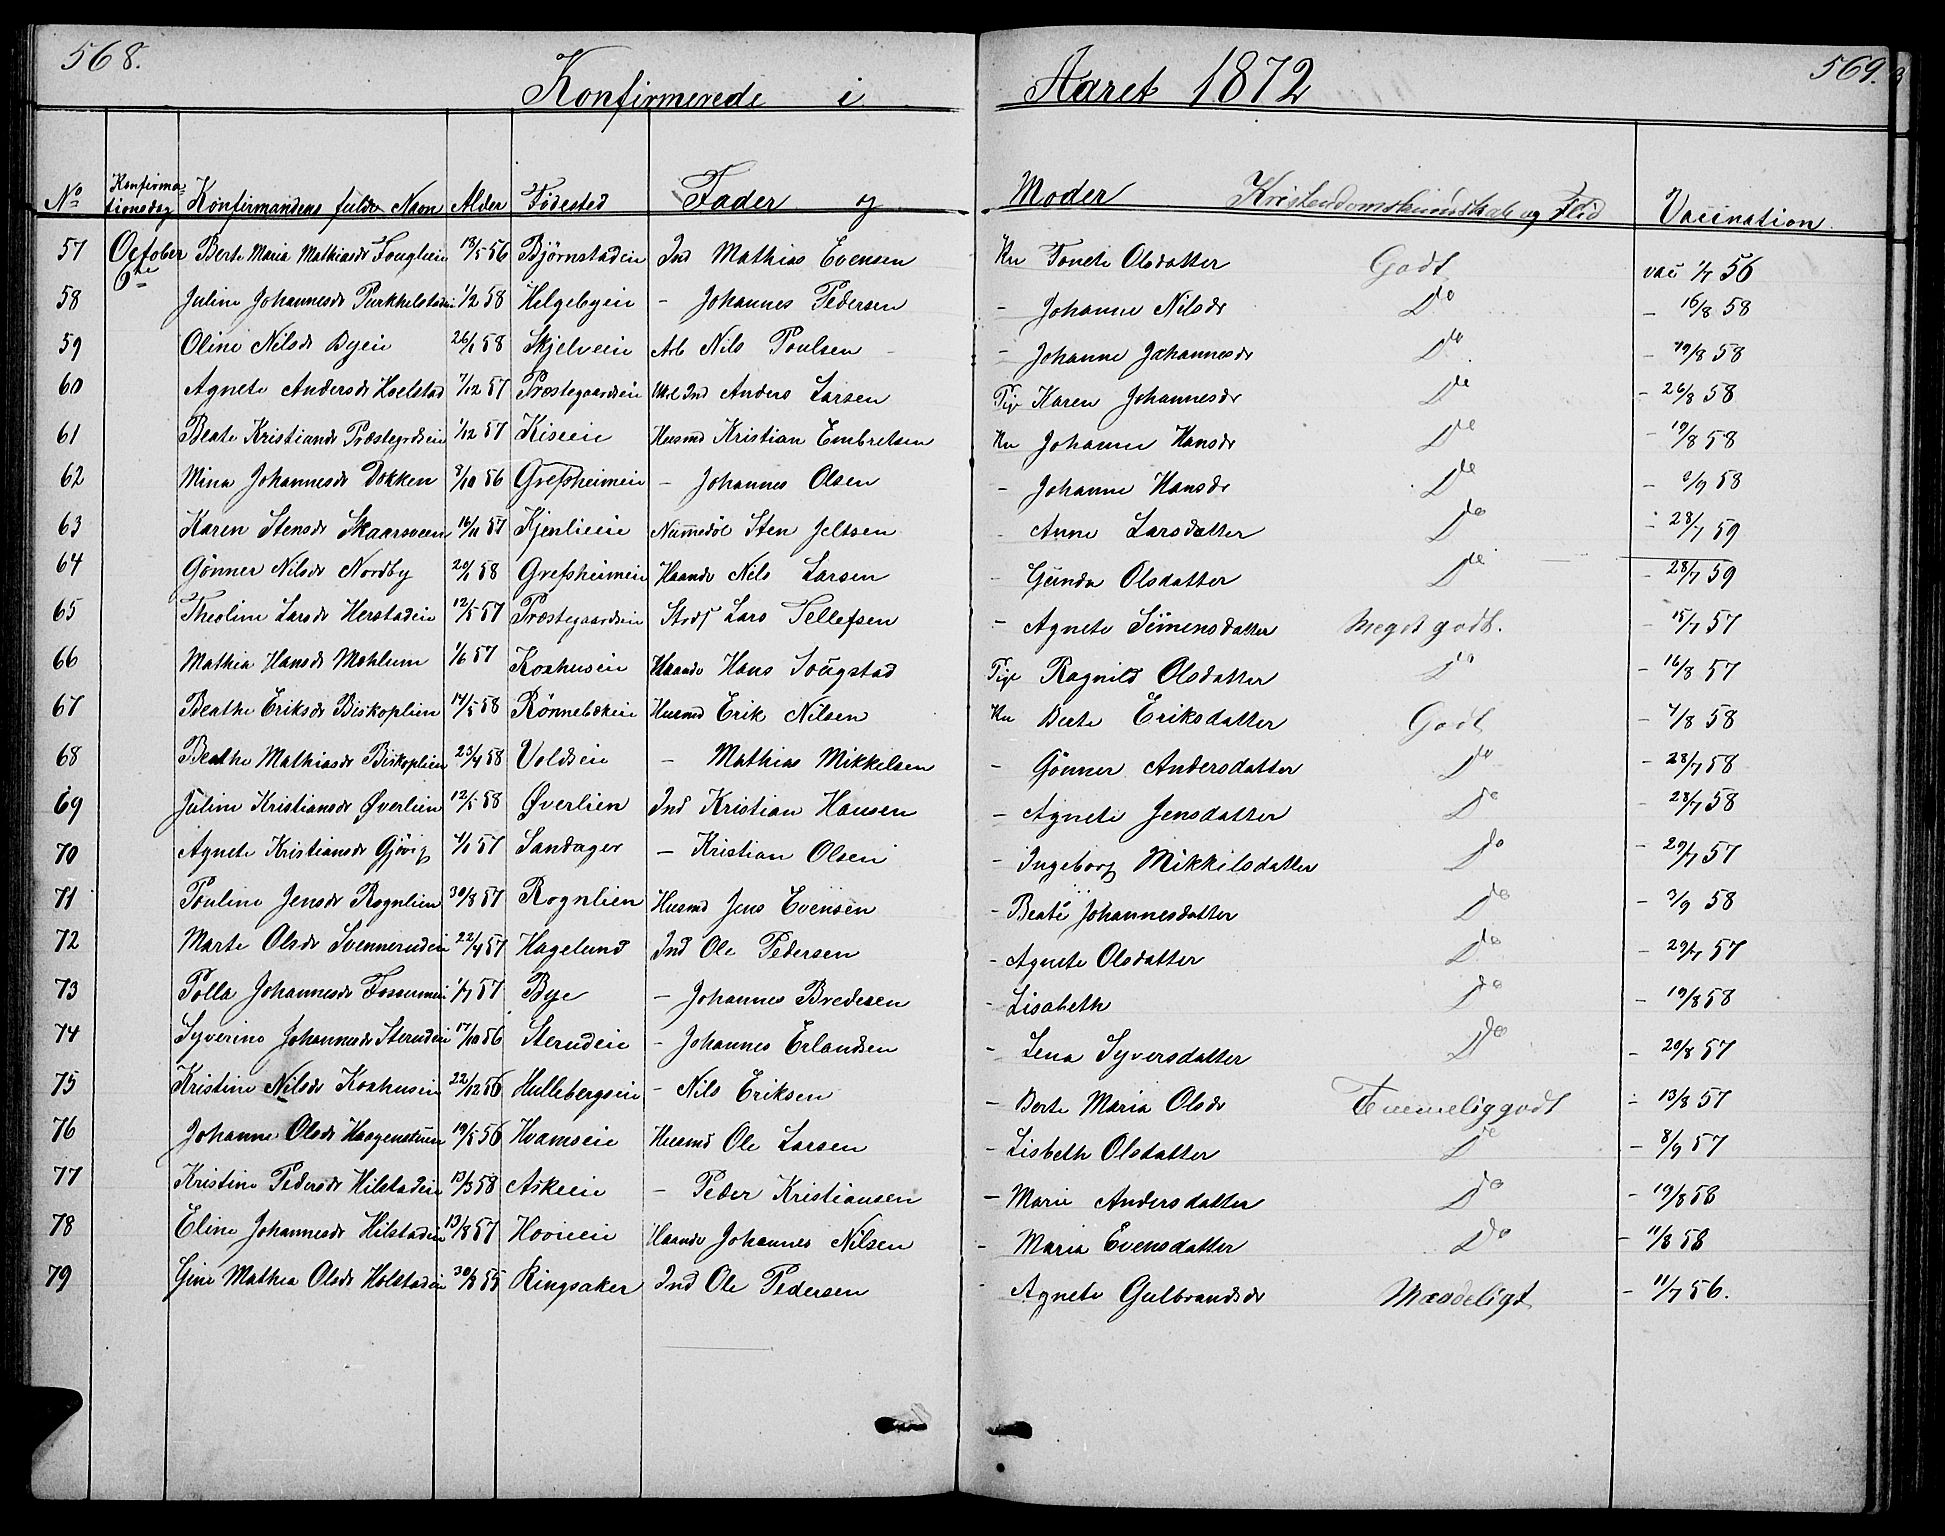 568. 569.
Konfirmerede i Aaret 1872
No Konfirmationsdag Konfirmandens fulde Navn Alder Födested Fader og Moder Kristendomskundskab og Flid Vaccination
57 October 6te Berte Maria Mathiasdr 18/5 56 Bjørnstadeie Ind Mathias Evensen Ku Tonete Olsdatter Godt vac 56
58 Juline Johannesdr 1/2 58 Helgebyeie - Johannes Pedersen - Johanne Nilsdr Do - 16/8 58
59 Oline Nilsdr Byeie 26/1 58 Skjelveeie Arb Nils Poulsen - Johanne Johannesdr Do - 19/8 58
60 Agnete Andersdr Hoelstad 7/12 57 Præstegaardseie Ind Anders Larsen Pige Karen Johannesdr Do - 26/8 58
61 Beate Kristiansdr Præstegrdseie 1/12 57 Kiseeie Husmd Kristian Embretsen Ku Johanne Hansdr Do - 19/8 58
62 Mina Johannesdr Dokken 8/10 56 Grefsheimeie - Johannes Olsen - Johanne Hansdr Do - 58
63 Karen Stensdr 16/11 57 Kjenlieeie Sten Jeltsen - Anne Larsdatter Do - 28/7 59
64 Gönner Nilsdr Nordby 20/1 58 Grefsheimeie Haandv Nils Larsen - Gunda Olsdatter Do - 28/7 59
65 Theoline Larsdr Herstadeie 12/5 57 Præstegaardseie Lars Tellefsen - Agnete Simensdatter Meget godt. - 15/7 57
66 Mathia Hansdr Mæhlum 1/6 57 Koxhuseie Haandv Hans Sougstad Pige Ragnild Olsdatter Do - 16/8 57
67 Beathe Eriksdr Biskoplien 14/5 58 Rönnebækeie Husmd Erik Nilsen Ku Berte Eriksdatter Godt - 58
68 Beathe Mathiasdr Biskoplien 23/4 58 Voldseie - Mathias Mikkelsen - Gönner Andersdatter Do - 28/7 58
69 Juline Kristiansdr Øverlien 12/5 58 Øverlien Ind Kristian Hansen - Agnete Jensdatter Do - 28/7 58
70 Agnete Kristiansdr Gjövig 57 Sandager - Kristian Olsen - Ingeborg Mikkelsdatter Do - 29/7 57
71 Pouline Jensdr Rognlien 30/8 57 Rognlien Husmd Jens Evensen - Beate Johannesdatter Do - 3/9 58
72 Marte Olsdr Svennerudeie 22/4 57 Hagelund Ind Ole Pedersen - Agnete Olsdatter Do - 29/7 57
73 Polla Johannesdr 57 Bye - Johannes Bredesen - Lisabeth Do - 19/8 58
74 Syverine Johannesdr Sterudeie 17/10 56 Sterudeie - Johannes Erlandsen - Lena Syversdatter Do - 20/8 57
75 Kristine Nilsdr Koxhuseie 22/12 56 Hullebergseie - Nils Eriksen - Berte Maria Olsdr Temmelig godt - 13/8 57
76 Johanne Olsdr Haagenstuen 19/5 56 Hvamseie Husmd Ole Larsen - Lisbeth Olsdatter Do - 8/9 57
77 Kristine Pedersdr Hilstadeie 13/3 58 Askeeie - Peder Kristiansen - Marie Andersdatter Do - 19/8 58
78 Eline Johannesdr Hilstadeie 13/8 57 Hovieeie Haandv Johannes Nilsen - Maria Evensdatter Do - 11/8 58
79 Gine Mathea Olsdr Holstadeie 55 Ringsaker Ind Ole Pedersen - Agnete Gulbrandsdr Maadeligt - 11/7 56.